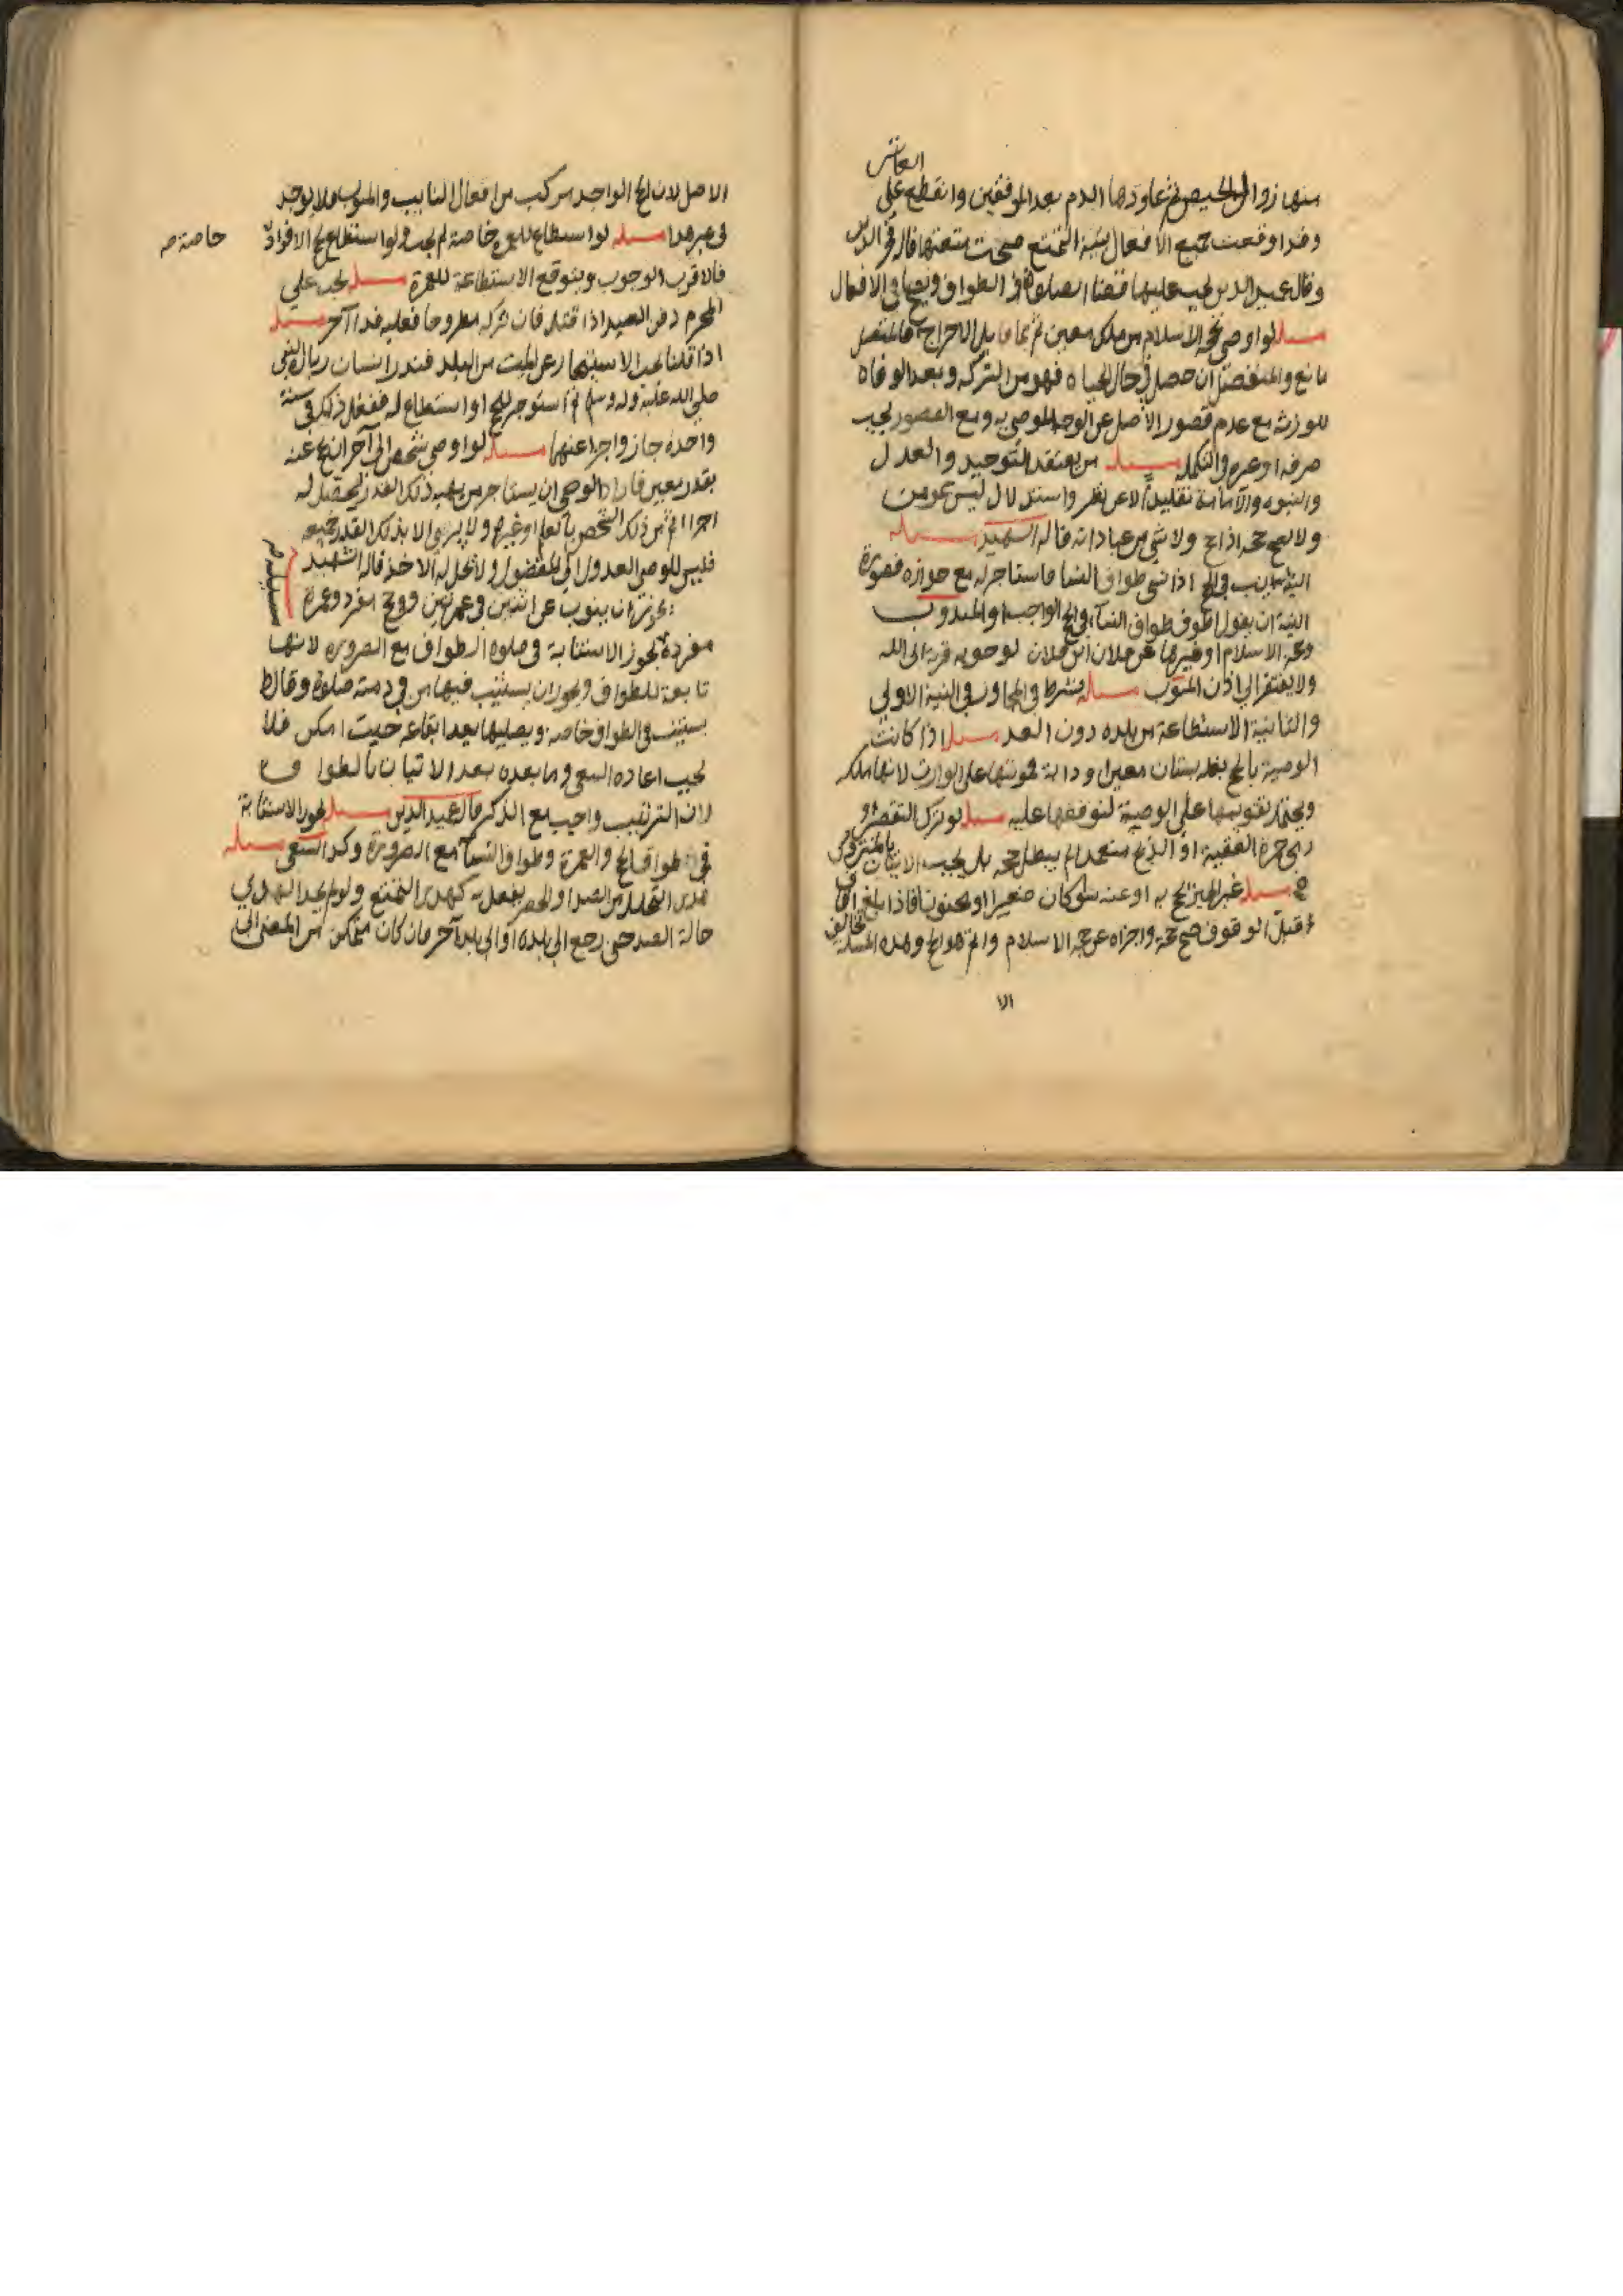 العاشر
منها زوال الحيض ثم عاودها الدم بعد الموقفين وانقطع على
وقد اوقعت جميع الافعال بنية التمتع صحت متعتها قاله فخر الدين
وقال عميد الدين يجب عليها قضا الصلوة في الطواف ويصح باقي الافعال
مسله لو اوصى بحجة الاسلام من ملك معين ثم نما قبل الاخراج فالمتصل
تابع والمنفصل ان حصل في حال الحياه فهو من التركه وبعد الوفاه
للورثه مع عدم قصور الاصل عن الوجه الموصى به ومع القصور يجب
صرفه او غيره والتكمله مسله من يعتقد التوحيد والعدل
والنبوه والامامة تقليدا لا عن نظر واستدلال ليس بمومن
ولا يصح حجه اذا حج ولا شي من عباداته قاله الشهيد مسله
النايب في الحج اذا نسي طواف النسا فاستاجر له مع جوازه فصورة
النية ان يقول اطوف طواف النسا في الحج الواجب او المندوب
وحج الاسلام او غيرها عن فلان ابن فلان لوجوبه قربة الى الله
ولا يفتقر الى اذن المنوب مسله يشترط في المجاور في النية الاولى
والثانية الاستطاعة من بلده دون البعد مسله اذا كانت
الوصية بالحج بغله بستان معين او دابة فمونتها على الوارث لانها ملكه
ويحتمل تقويمها على الوصية لتوقفها عليه مسله لو ترك التقصير او
رمي جمرة العقبة او الذبح متعمدا لم يبطل حجه بل يجب الاتيان بالمتروك
مسله غير المميز يحج به او عنه سوا كان صغيرا او مجنونا فاذا بلغ افاق
قبل الوقوف صح حجه واجزاه عن حجة الاسلام واتم هو الحج وهذه المسله تخالف
الا
الاصل لان الحج الواحد مركب من افعال النايب والمنوب فلا يوجد
في غير هذا مسله لو استطاع للعمره خاصة لم يجب ولو استطاع لحج الافراد
خاصة صح
فالاقرب الوجوب ويتوقع الاستطاعة للعمرة مسله يجب على
المحرم دفن الصيد اذا قتله فان تركه مطروحا فعليه فدا آخر مسله
اذا قلنا يجب الاستيجار عن الميت من البلد فنذر انسان زيارة النبي
صلى الله عليه واله وسلم ثم استوجر للحج او استطاع له ففعل ذلك في سنة
واحدة جاز واجزا عنهما مسله لو اوصى شخص الى آخر ان يحج عنه
بقدر معين فاراد الوصي ان يستاجر من يهبه ذلك القدر ليحصل له
اجرا اكثر من ذلك الشخص بالعلم او غيره ولا يرضى الا بذلك القدر جميعه
فليس للوصي العدول الى المفضول ولا يحل له الاخذ قاله الشهيد
مسله صح
يجوز ان ينوب عن اثنين في عمرتين وفي حج مفرد وعمرة
مفردة يجوز الاستنابة في صلوة الطواف مع الضروره لانها
تابعة للطواف ويجوز ان يستنيب فيها من في ذمته صلوة وقال ط
يستنيب في الطواف خاصه ويصليها بعد ايقاعه حيث امكن فلا
يجب اعاده السعي وما بعده بعد الاتيان بالطواف
لان الترتيب واجب مع الذكر قاله عميد الدين مسله يجوز الاستنابة
في طواف الحج والعمرة وطواف النساء مع الضرورة وكذا السعي مسله
هدي التحلل من الصد او الحصر يفعل به كهدي التمتع ولو لم يجد الهدي
حالة الصد حتى رجع الى بلده او الى بلد آخر فان كان متمكن من المضي الى